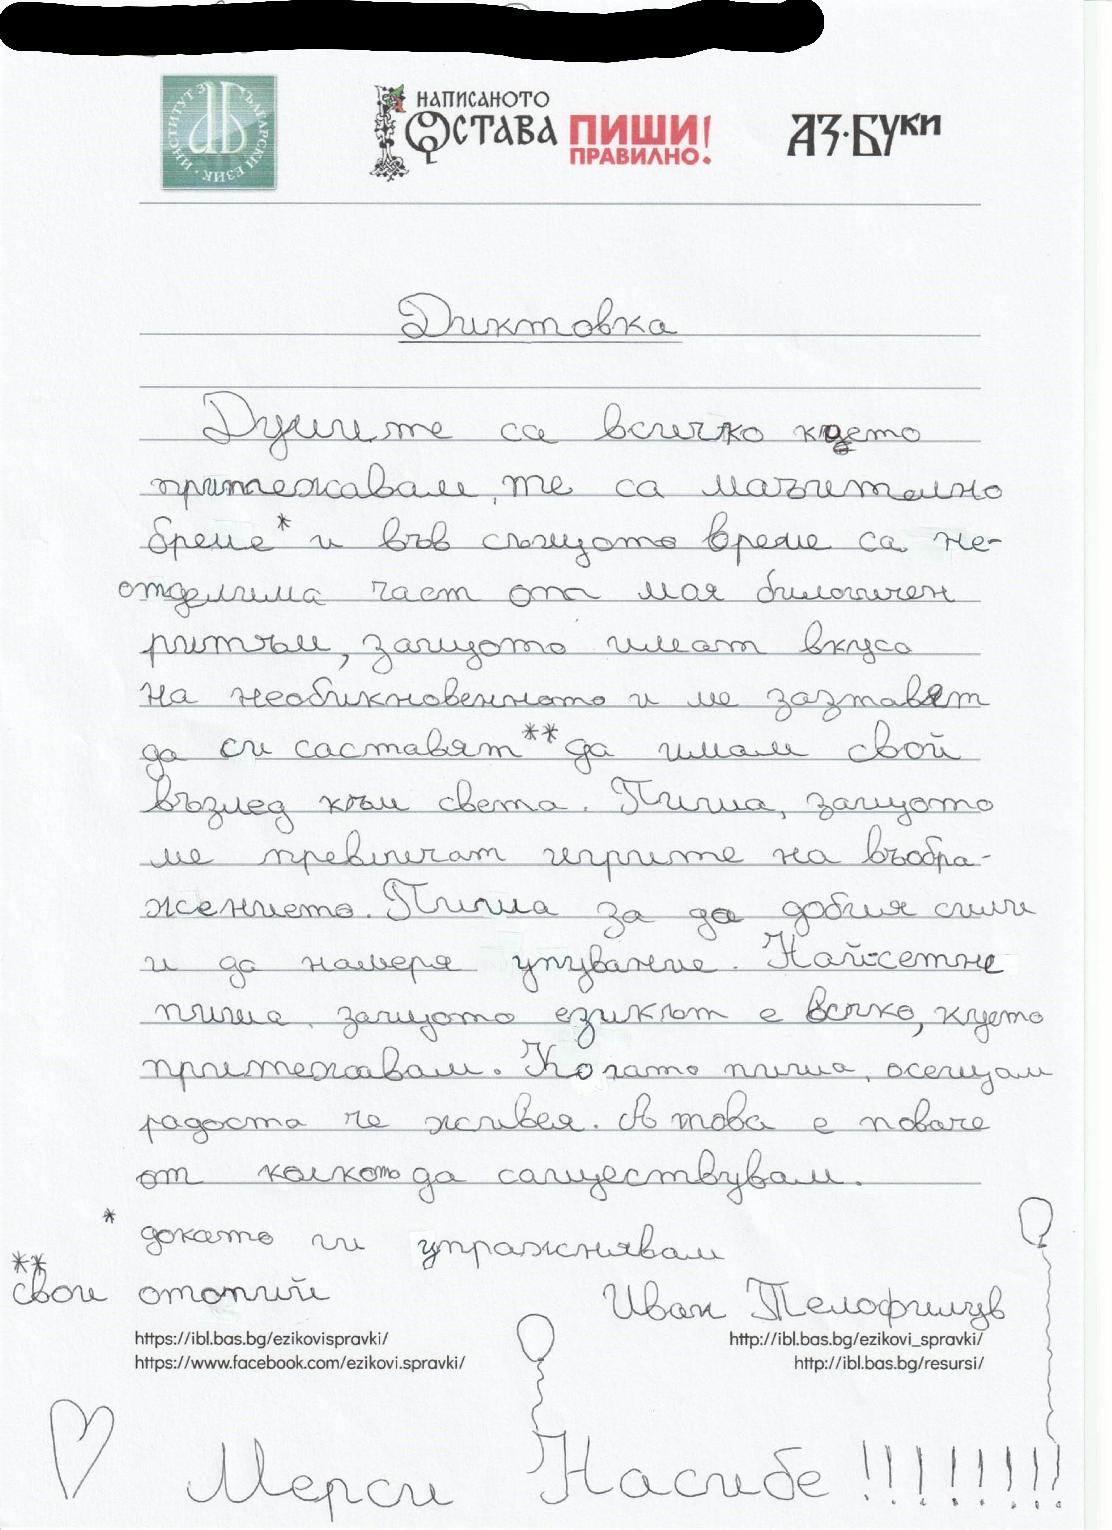 ИНСТИТУТ ЗА БЪЛГАРСКИ ЕЗИК
НАПИСАНОТО
ОСТАВА ПИШИ!
ПРАВИЛНО.
АЗ·БУКИ
Диктовка
Думите са всичко което
притежавам, те са мъчително
бреме* и във същото време са не-
отделима част от мая билогичен
ритъм, защото имат вкуса
на необикновенното и ме заставят
да си съставят** да имам свой
възглед към света. Пиша, защото
ме превличат игрите на въобра-
жението. Пиша за да добия сили
и да намеря упувание. Най-сетне
пиша, защото езикът е всичко, което
притежавам. Когато пиша, осещам
радоста че живея. А това е повече
от колкото да саществувам.
* докато ги упражнявам
**
свои отопий
Иван
https://ibl.bas.bg/ezikovispravki/ http://ibl.bas.bg/ezikovi_spravki/
https://www.facebook.com/ezikovi.spravki/ http://ibl.bas.bg/resursi/
Мерси Насибе !!!!!!!!!